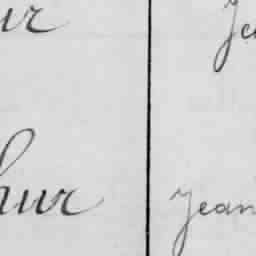 ur Je
hur Jean